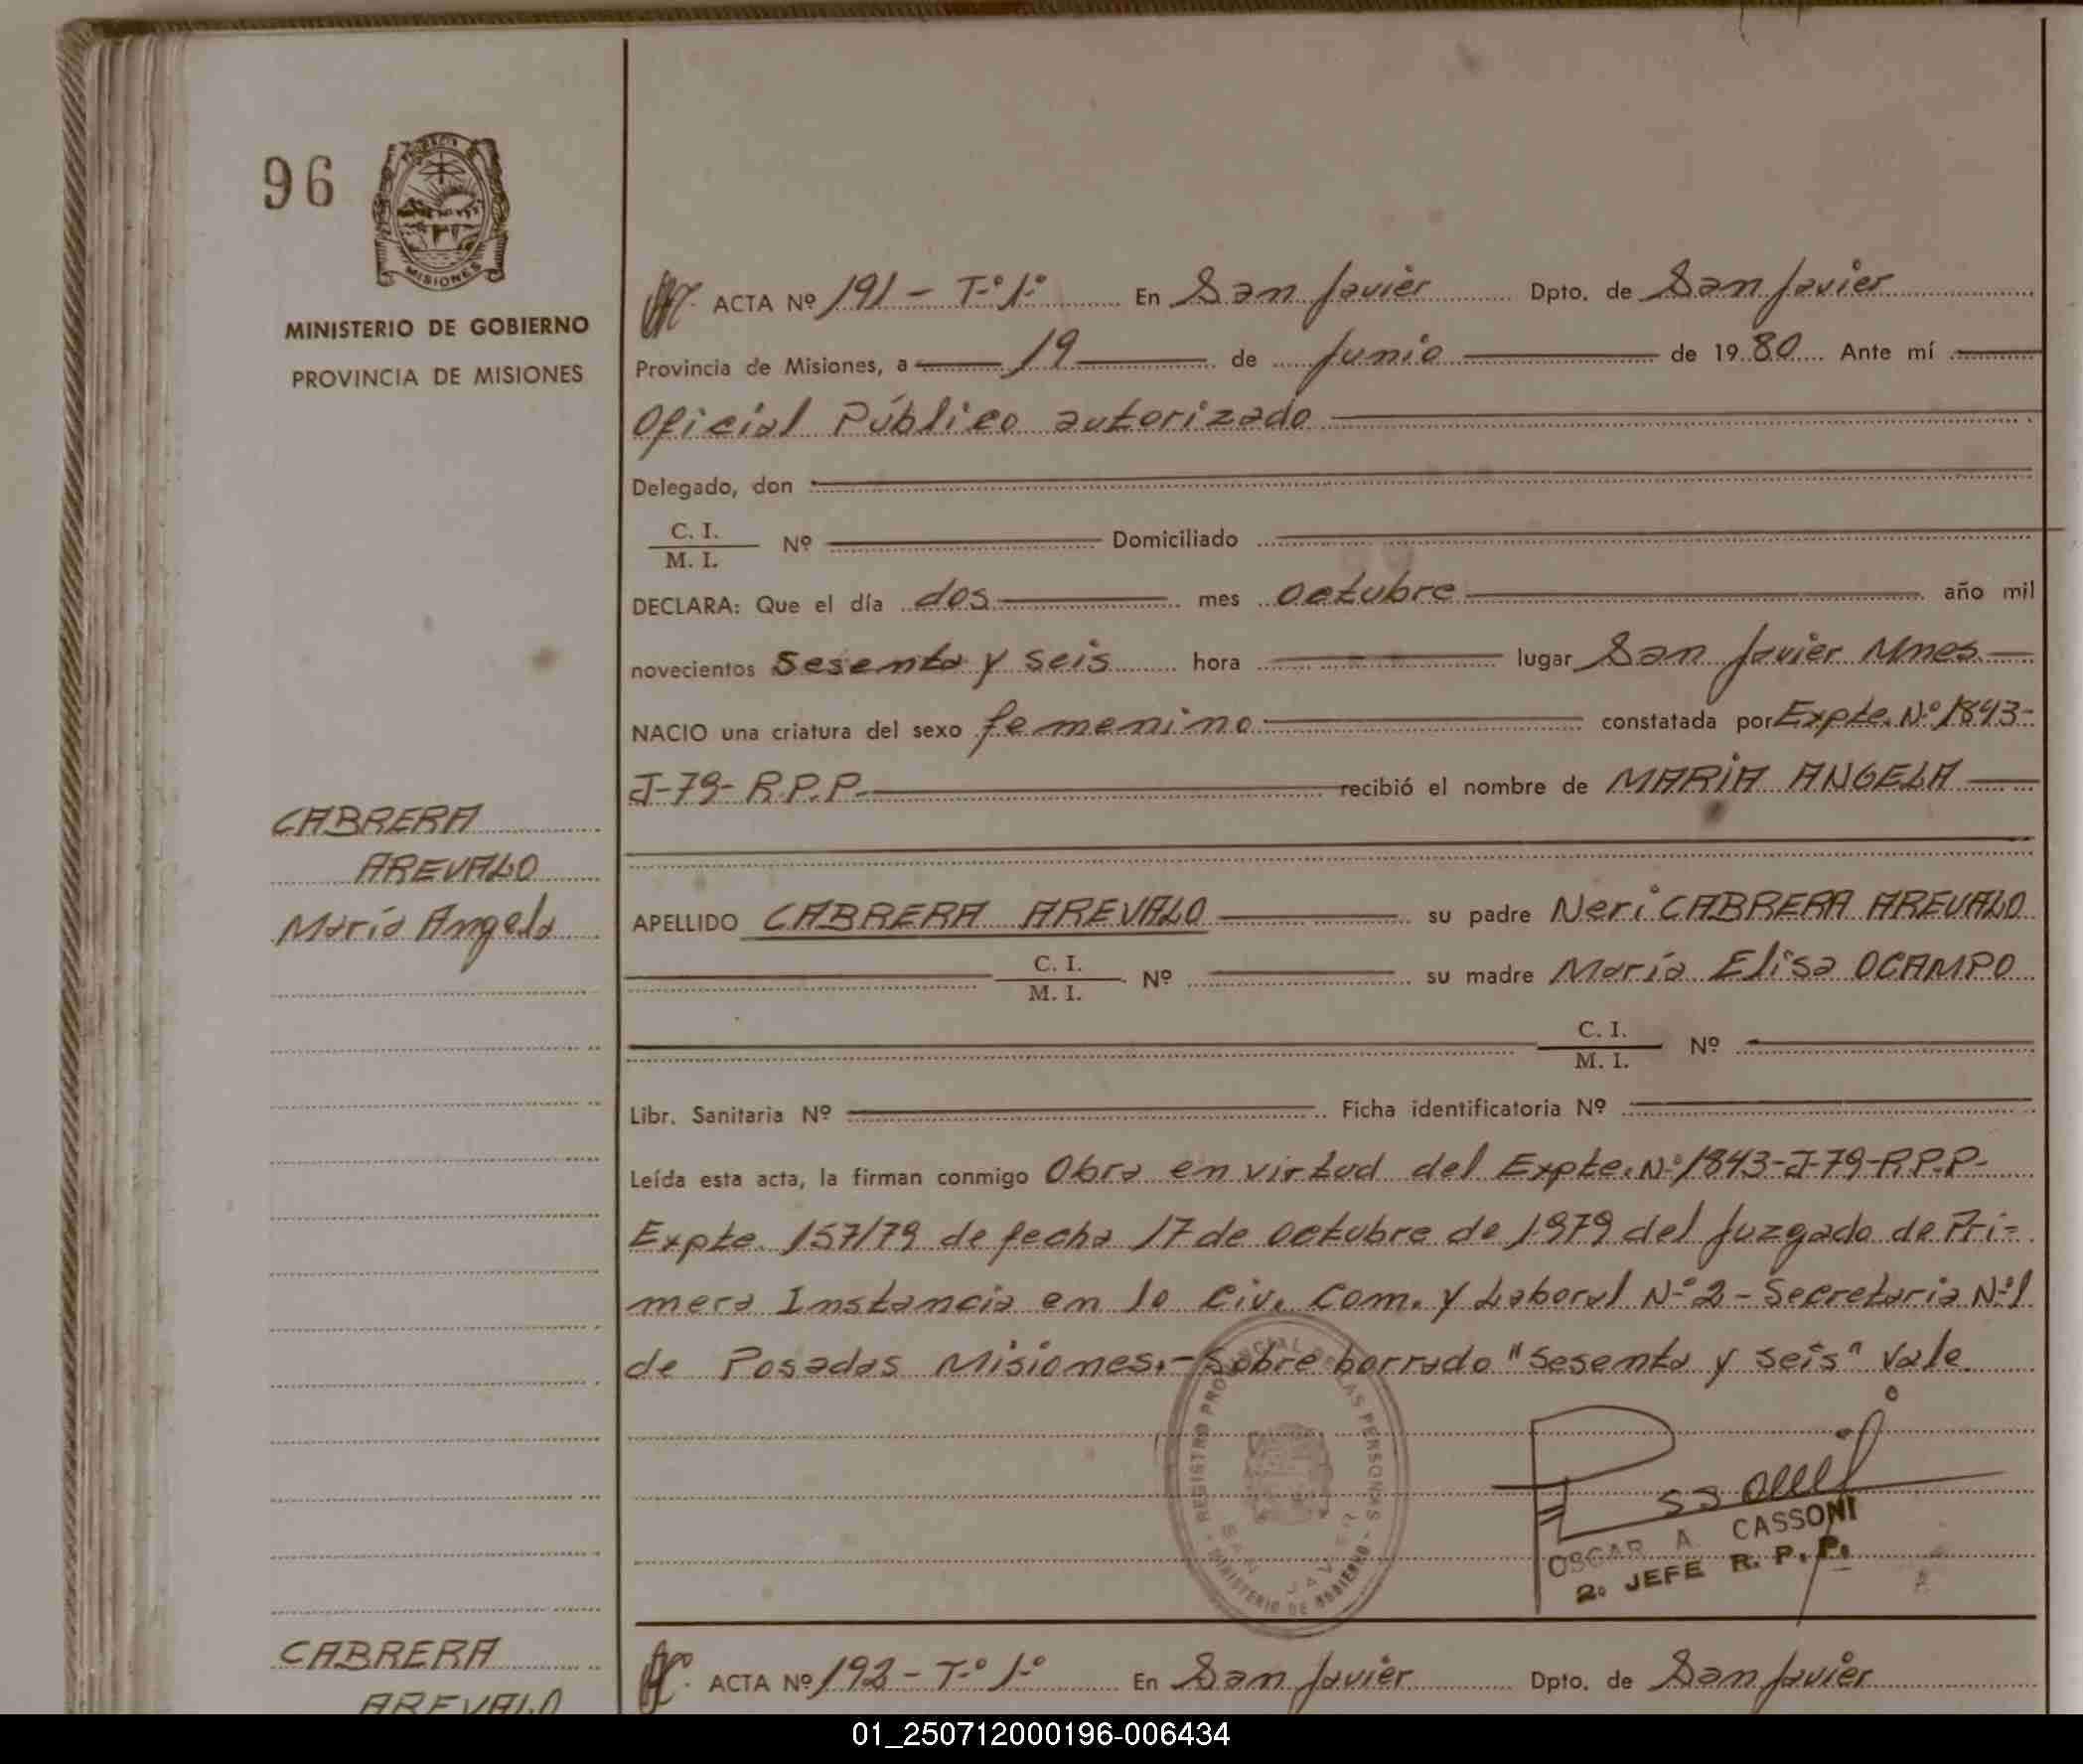 96
PROVINCIA DE
MISIONES
MINISTERIO DE GOBIERNO
PROVINCIA DE MISIONES
ACTA Nº 191 - T.º 1.º En San Javier Dpto. de San Javier
Provincia de Misiones, a 19 de Junio de 1980 Ante mí
Oficial Público autorizado
Delegado, don
C. I.
M. I. Nº Domiciliado
DECLARA: Que el día dos mes octubre año mil
novecientos sesenta y seis hora lugar San Javier Mnes
NACIO una criatura del sexo femenino constatada por Expte. Nº 1843-
J-79-R.P.P. recibió el nombre de MARÍA ANGELA
CABRERA
AREVALO
María Angela
APELLIDO CABRERA AREVALO su padre Neri CABRERA AREVALO
C. I.
M. I. Nº su madre María Elisa OCAMPO
C. I.
M. I. Nº
Libr. Sanitaria Nº Ficha identificatoria Nº
Leída esta acta, la firman conmigo Obra en virtud del Expte. Nº 1843-J-79-R.P.P-
Expte. 157/79 de fecha 17 de octubre de 1979 del Juzgado de Pri=
mera Instancia en lo Civ. Com. y Laboral Nº 2 - Secretaria Nº 1
de Posadas Misiones.- Sobre borrado "sesenta y seis" Vale
REGISTRO PROVINCIAL DE LAS PERSONAS
SAN JAVIER
MINISTERIO DE GOBIERNO
OSCAR A. CASSONI
2º JEFE R. P. P.
CABRERA
AREVALO
ACTA Nº 192 - T.º 1.º En San Javier Dpto. de San Javier
01_250712000196-006434